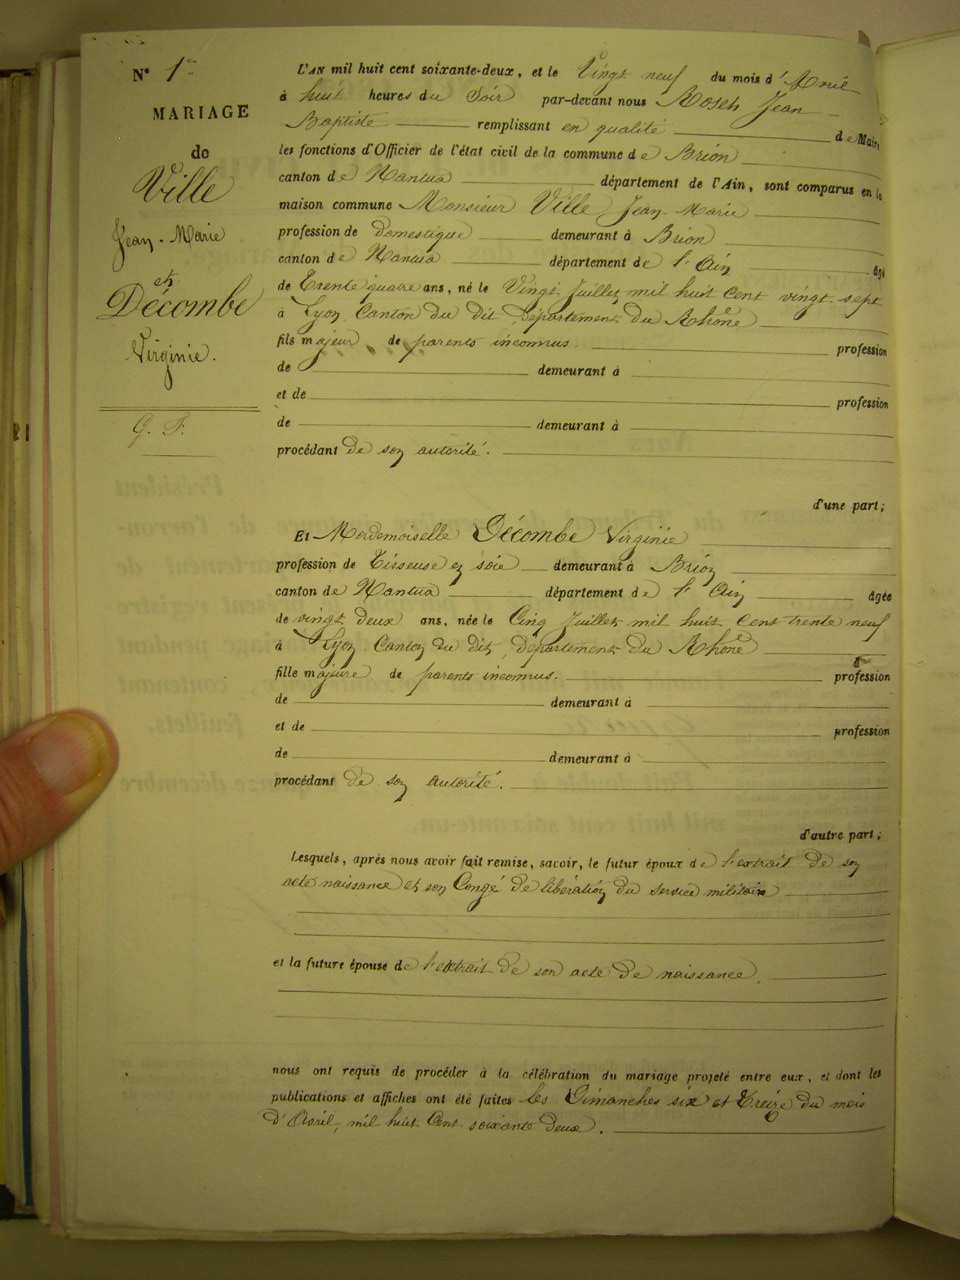 N° 1er
MARIAGE
de
Ville
Jean-Marie
et
Décombe
Virginie.
G. P.
L'AN mil huit cent soixante-deux, et le Vingt neuf du mois d'Avril
à huit heures du Soir par-devant nous Roseh Jean
Baptiste remplissant en qualité de Maire
les fonctions d'Officier de l'état civil de la commune de Brion
canton de Nantua département de l'Ain, sont comparus en la
maison commune Monsieur Ville Jean-Marie
profession de domestique demeurant à Brion
canton de Nantua département de l'Ain âgé
de Trente quatre ans, né le Vingt Juillet mil huit cent vingt sept
à Lyon Canton du dit, Département du Rhône
fils majeur de parents inconnus. profession
de demeurant à
et de profession
de demeurant à
procédant de son autorité.
d'une part;
Et Mademoiselle Décombe Virginie
profession de Tisseuse en soie demeurant à Brion
canton de Nantua département de l'Ain âgée
de vingt deux ans, née le Cinq Juillet mil huit Cent trente neuf
à Lyon Canton du dit, département du Rhône
fille majeure de parents inconnus. profession
de demeurant à
et de profession
de demeurant à
procédant de son autorité.
d'autre part;
Lesquels, après nous avoir fait remise, savoir, le futur époux de l'extrait de son
acte naissance et son Congé de libération du service militaire
et la future épouse de l'extrait de son acte de naissance.
nous ont requis de procéder à la célébration du mariage projeté entre eux, et dont les
publications et affiches ont été faites les Dimanches six et Treize du mois
d'Avril, mil huit Cent soixante deux.